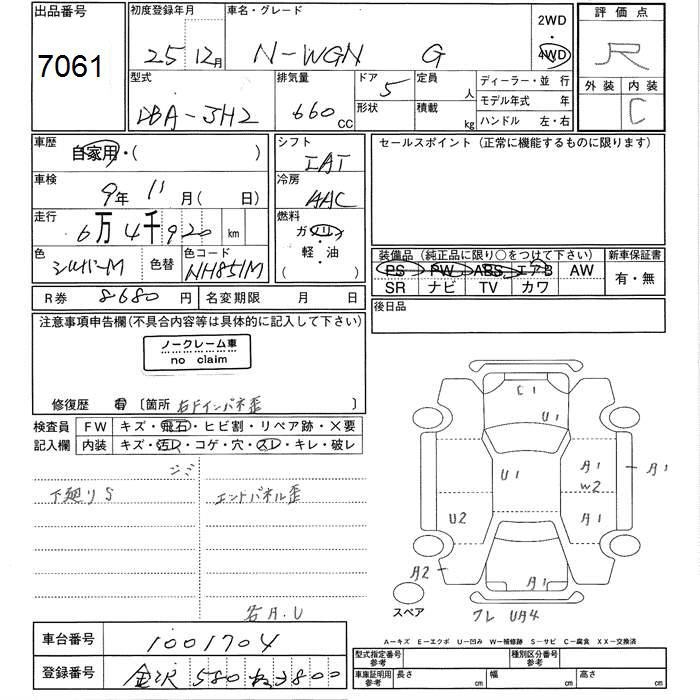 出品番号
7061
初度登録年月
25 12月
車名・グレード
N-WGN G
2WD
・
4WD
評価点
R
外装 内装
C
型式
DBA-JH2
排気量
660 CC
ドア
5
形状
定員
人
積載
kg
ディーラー・並行
モデル年式 年
ハンドル 左・右
車歴
自家用・( )
シフト
IAT
セールスポイント (正常に機能するものに限ります)
車検
9年 11月(日)
冷房
AAC
走行
6万4千920 km
燃料
ガソリン
軽・油
( )
色
シルバーM
色替
色コード
NH851M
装備品 (純正品に限り○をつけて下さい)
PS PW ABS エアB AW
SR ナビ TV カワ
新車保証書
有・無
R券 8680円
名変期限 月 日
後日品
注意事項申告欄(不具合内容等は具体的に記入して下さい)
ノークレーム車
no claim
修復歴 有 〔箇所 右Fインパネ歪
検査員
記入欄
FW キズ・飛石・ヒビ割・リペア跡・×要
内装 キズ・汚レ・コゲ・穴・スレ・キレ・破レ
シミ
下廻りS
エンドパネル歪
右A.U
C1
U1
U1
A1
W2
A1
A1
U2
A2
A1
スペア
フレ UA4
A-キズ E-エクボ U-凹み W-補修跡 S-サビ C-腐食 XX-交換済
車台番号
1001704
登録番号
金沢 580 3800
型式指定番号
参考
種別区分番号
参考
車庫証明用
参考
長さ cm
幅 cm
高さ cm